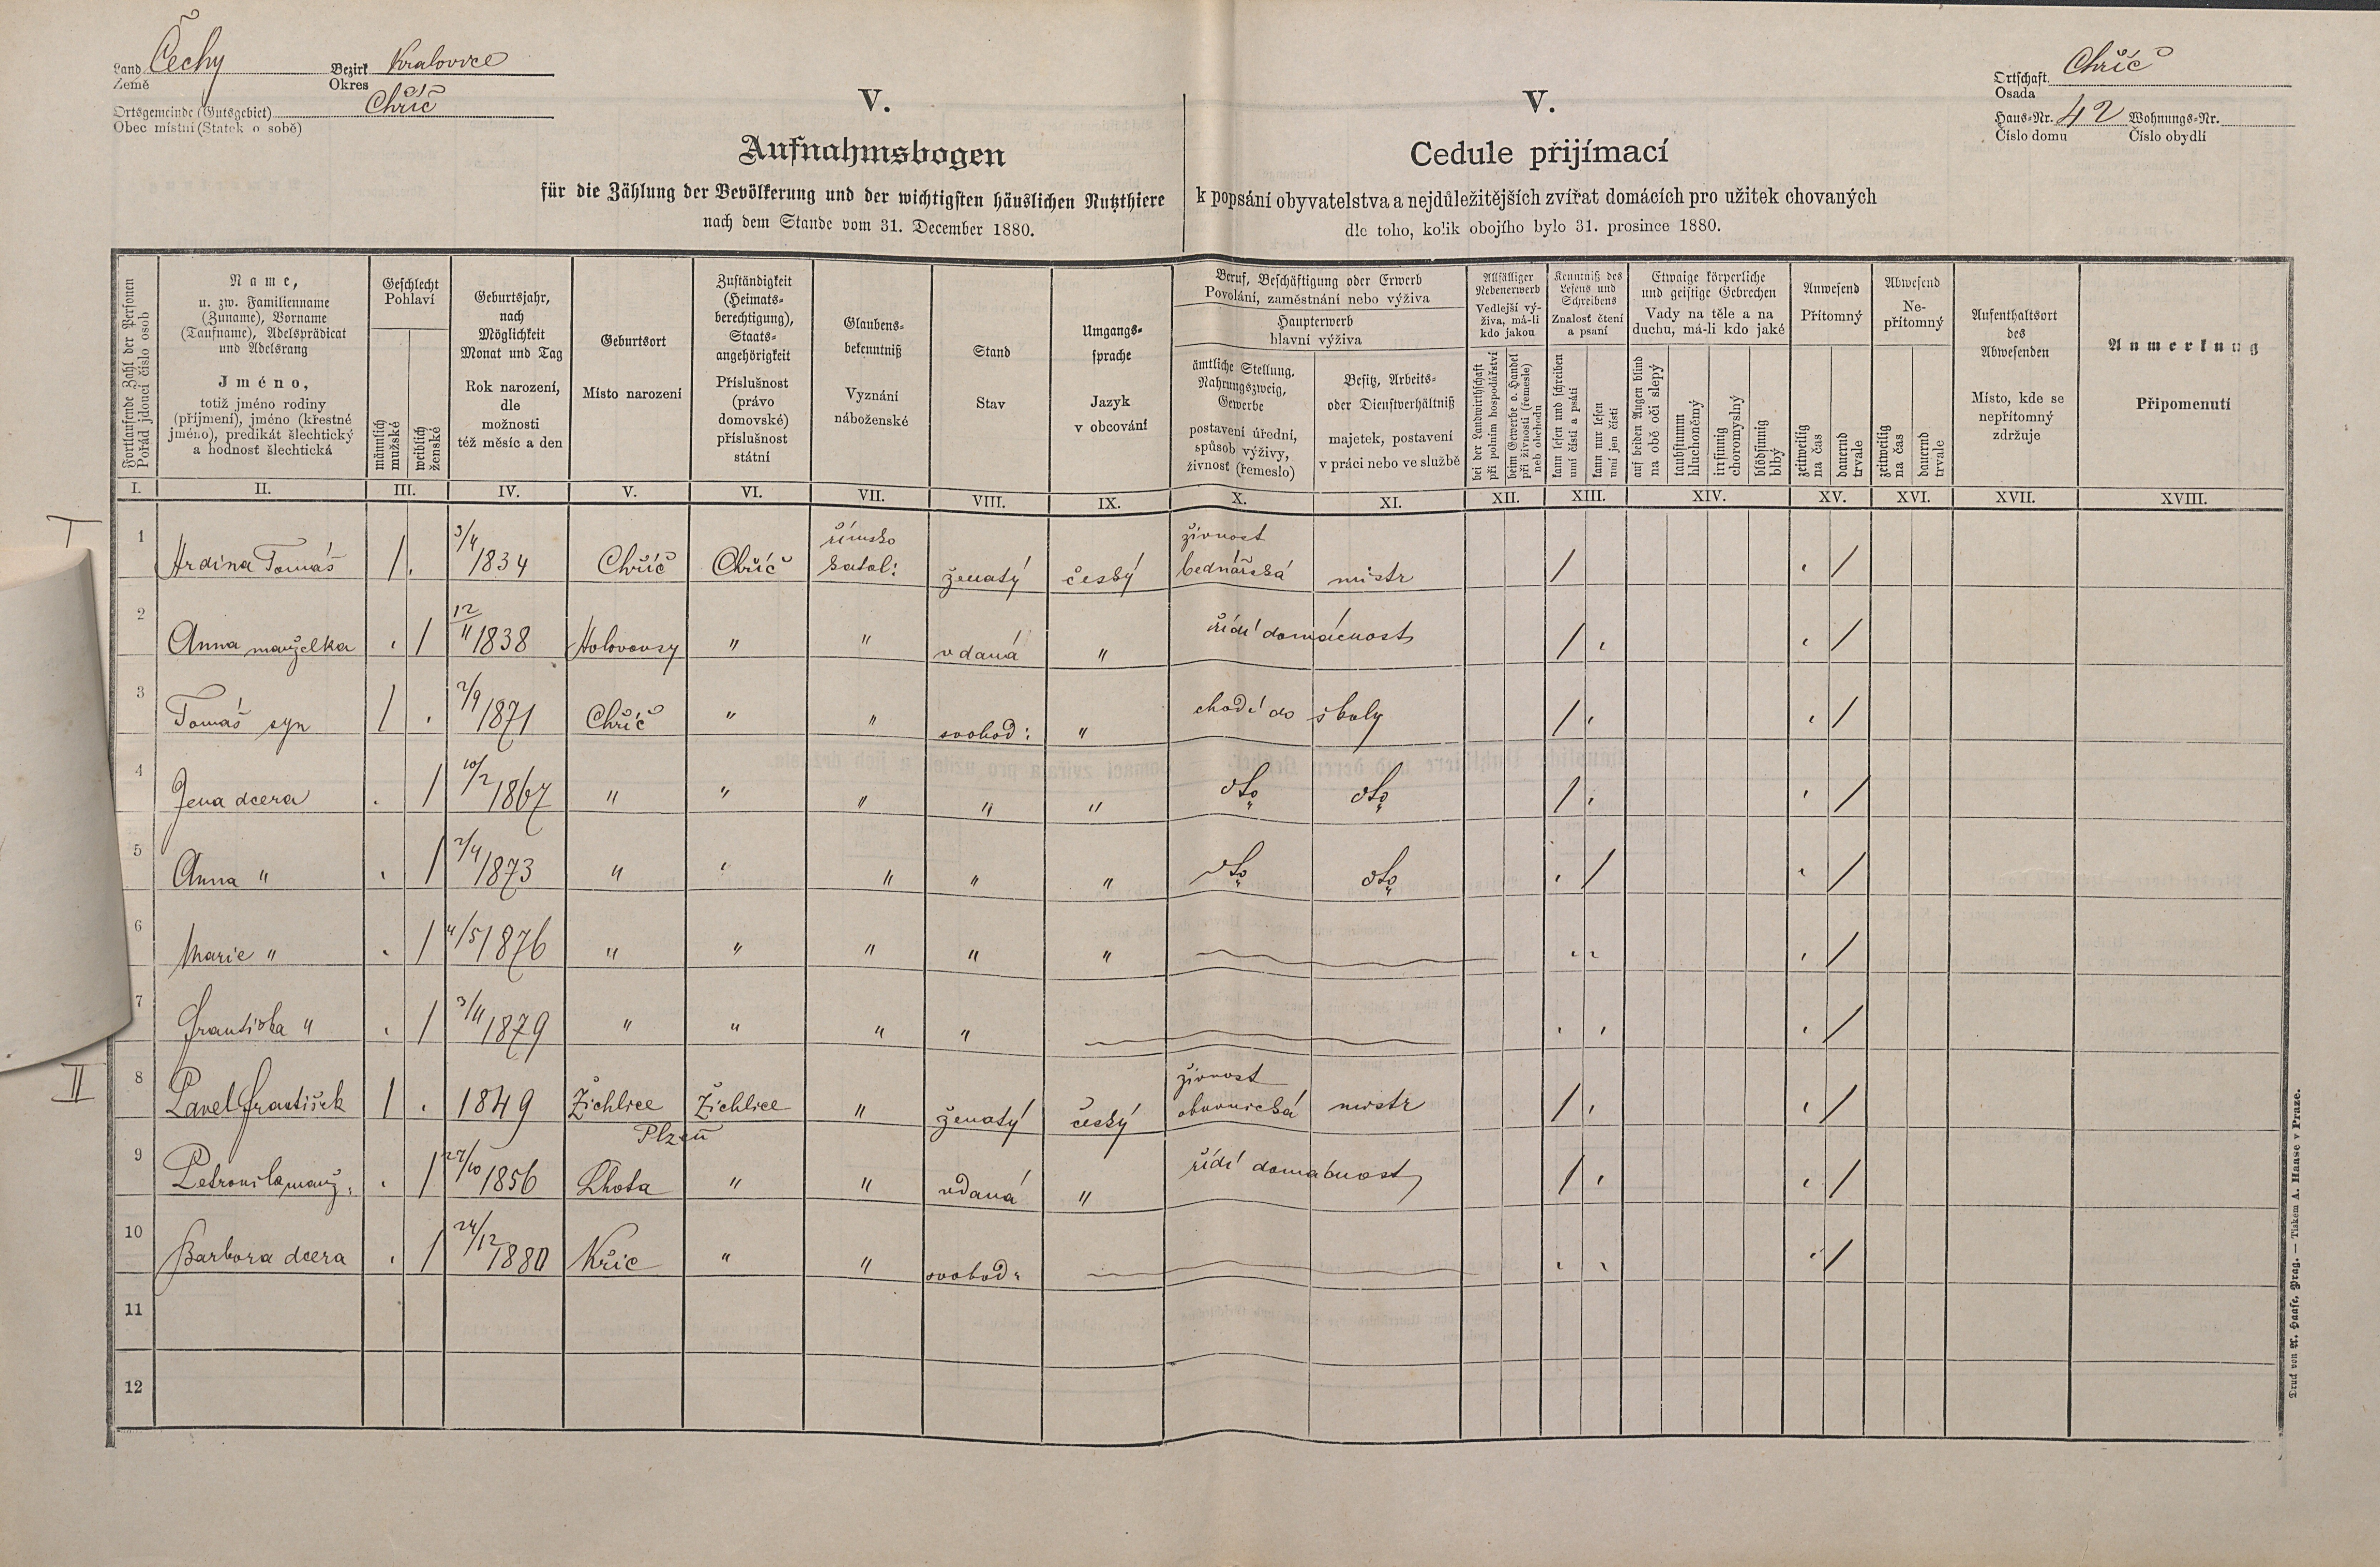 Land Čechy Bezirk Kralovice
Země Okres
Ortsgemeinde (Gutsgebiet) Chříč
Obec místní (Statek o sobě)
Ortschaft Chříč
Osada
Haus-Nr. 42 Wohnungs-Nr.
Číslo domu Číslo obydlí
V.
Aufnahmsbogen
für die Zählung der Bevölkerung und der wichtigsten häuslichen Nutzthiere
nach dem Stande vom 31. December 1880.
V.
Cedule přijímací
k popsání obyvatelstva a nejdůležitějších zvířat domácích pro užitek chovaných
dle toho, kolik obojího bylo 31. prosince 1880.
Fortlaufende Zahl der Personen
Pořád jdoucí číslo osob
Name,
u. zw. Familienname
(Zuname), Vorname
(Taufname), Adelsprädicat
und Adelsrang
Jméno,
totiž jméno rodiny
(příjmení), jméno (křestné
jméno), predikát šlechtický
a hodnost šlechtická
Geschlecht
Pohlaví
männlich
mužské
weiblich
ženské
Geburtsjahr,
nach
Möglichkeit
Monat und Tag
Rok narození,
dle
možnosti
též měsíc a den
Geburtsort
Místo narození
Zuständigkeit
(Heimats-
berechtigung),
Staats-
angehörigkeit
Příslušnost
(právo
domovské)
příslušnost
státní
Glaubens-
bekenntniß
Vyznání
náboženské
Stand
Stav
Umgangs-
sprache
Jazyk
v obcování
Beruf, Beschäftigung oder Erwerb
Povolání, zaměstnání nebo výživa
Haupterwerb
hlavní výživa
ämtliche Stellung,
Nahrungszweig,
Gewerbe
postavení úřední,
spůsob výživy,
živnost (řemeslo)
Besitz, Arbeits-
oder Dienstverhältniß
majetek, postavení
v práci nebo ve službě
Allfälliger
Nebenerwerb
Vedlejší vý-
živa, má-li
kdo jakou
bei der Landwirthschaft
při polním hospodářství
beim Gewerbe o. Handel
při živnosti (řemesle)
neb obchodu
Kenntniß des
Lesens und
Schreibens
Znalost čtení
a psaní
kann lesen und schreiben
umí čísti a psáti
kann nur lesen
umí jen čísti
Etwaige körperliche
und geistige Gebrechen
Vady na těle a na
duchu, má-li kdo jaké
auf beiden Augen blind
na obě oči slepý
taubstumm
hluchoněmý
irrsinnig
choromyslný
blödsinnig
blbý
Anwesend
Přítomný
zeitweilig
na čas
dauernd
trvale
Abwesend
Ne-
přítomný
zeitweilig
na čas
dauernd
trvale
Aufenthaltsort
des
Abwesenden
Místo, kde se
nepřítomný
zdržuje
Anmerkung
Připomenutí
I. II. III. IV. V. VI. VII. VIII. IX. X. XI. XII. XIII. XIV. XV. XVI. XVII. XVIII.
I
1 Hrdina Tomáš / 3/4 1834 Chříč Chříč římsko katol: ženatý český živnost bednářská mistr / /
2 Anna manželka / 12/11 1838 Holovousy " " vdaná " řídí domácnost / /
3 Tomáš syn / 2/9 1871 Chříč " " svobod: " chodí do školy / /
4 Jena dcera / 10/2 1867 " " " " " dto dto / /
5 Anna " / 2/4 1873 " " " " " dto dto / /
6 Marie " / 4/5 1876 " " " " " /
7 Františka " / 3/11 1879 " " " " /
II
8 Pavel František / 1849 Žichlice Žichlice " ženatý český živnost obuvnická mistr / /
Plzeň
9 Petronila manž. / 27/10 1856 Lhota " " vdaná " řídí domácnost / /
10 Barbora dcera / 24/12 1880 Křic " " svobod: /
11
12
Druck von A. Haase, Prag. — Tiskem A. Haase v Praze.